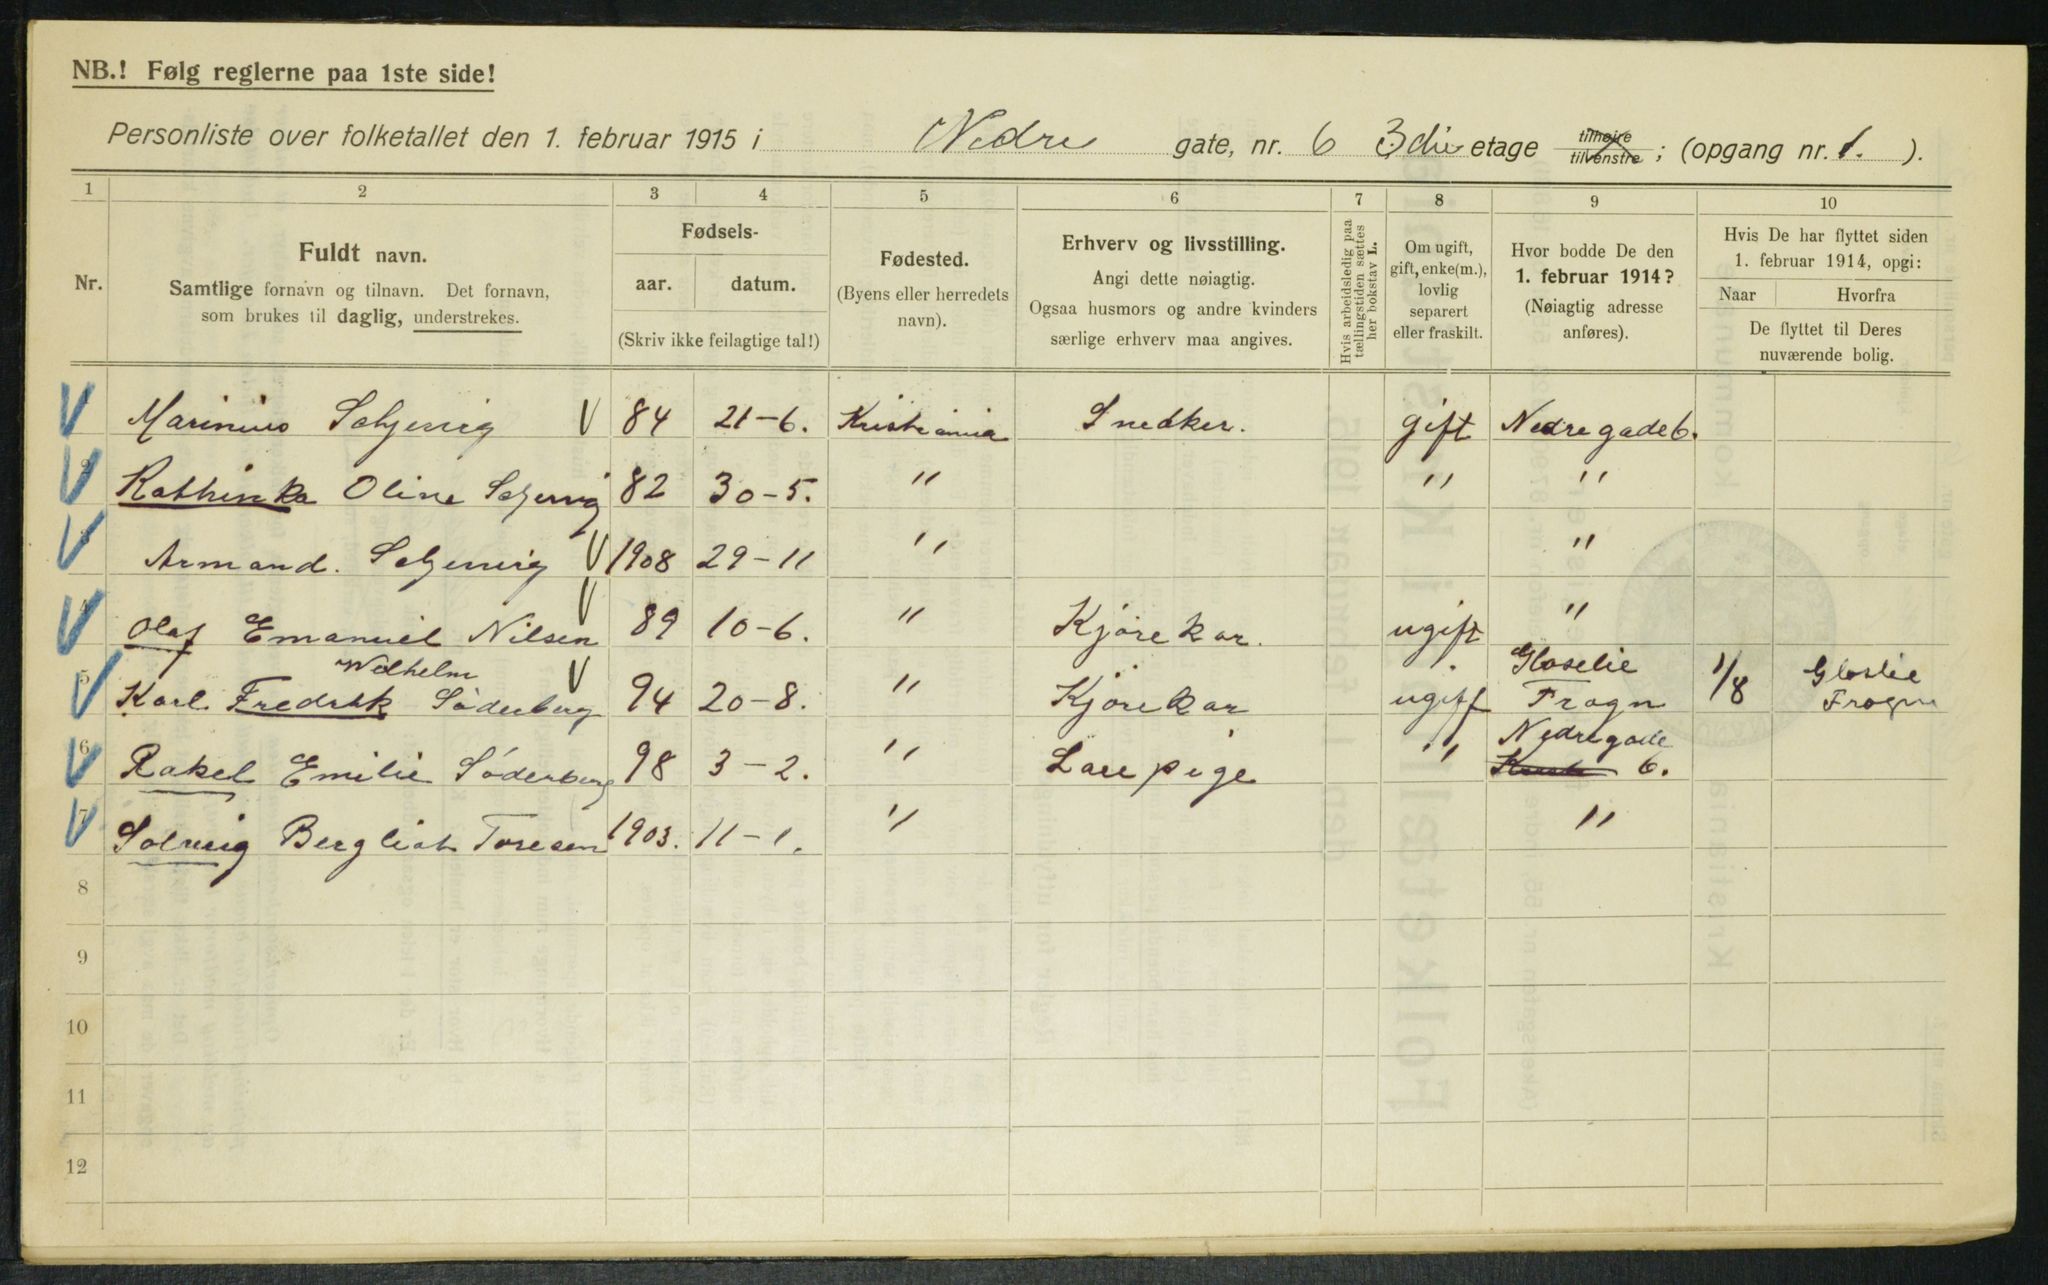 NB.! Følg reglerne paa 1ste side!
Personliste over folketallet den 1. februar 1915 i Nedre gate, nr. 6 3die etage tilhøire tilvenstre ; (opgang nr. 1. ).
1 2 3 4 5 6 7 8 9 10
Nr.
Fuldt navn.
Samtlige fornavn og tilnavn. Det fornavn,
som brukes til daglig, understrekes.
Fødsels-
aar. datum.
(Skriv ikke feilagtige tal!)
Fødested.
(Byens eller herredets
navn).
Erhverv og livsstilling.
Angi dette nøiagtig.
Ogsaa husmors og andre kvinders
særlige erhverv maa angives.
Hvis arbeidsledig paa
tællingstiden sættes
her bokstav L.
Om ugift,
gift, enke(m.),
lovlig
separert
eller fraskilt.
Hvor bodde De den
1. februar 1914?
(Nøiagtig adresse
anføres).
Hvis De har flyttet siden
1. februar 1914, opgi:
Naar Hvorfra
De flyttet til Deres
nuværende bolig.
1 Marinius V 84 21-6. Kristiania Snedker. gift Nedregade 6.
2 Kathinka Oline 82 30-5. " " "
3 Armand. V 1908 29-11 " "
4 Olaf Emanuel Nilsen V 89 10-6. " Kjørekar. ugift "
5 Karl Fredrik Wilhelm Søderberg V 94 20-8. " Kjørekar ugift Frogn 1/8 Frogn
6 Rakel Emilie Søderberg 98 3-2. " Lærepige " Nedregade 6.
7 Solveig Bergliot Toresen 1903. 11-1. " "
8
9
10
11
12